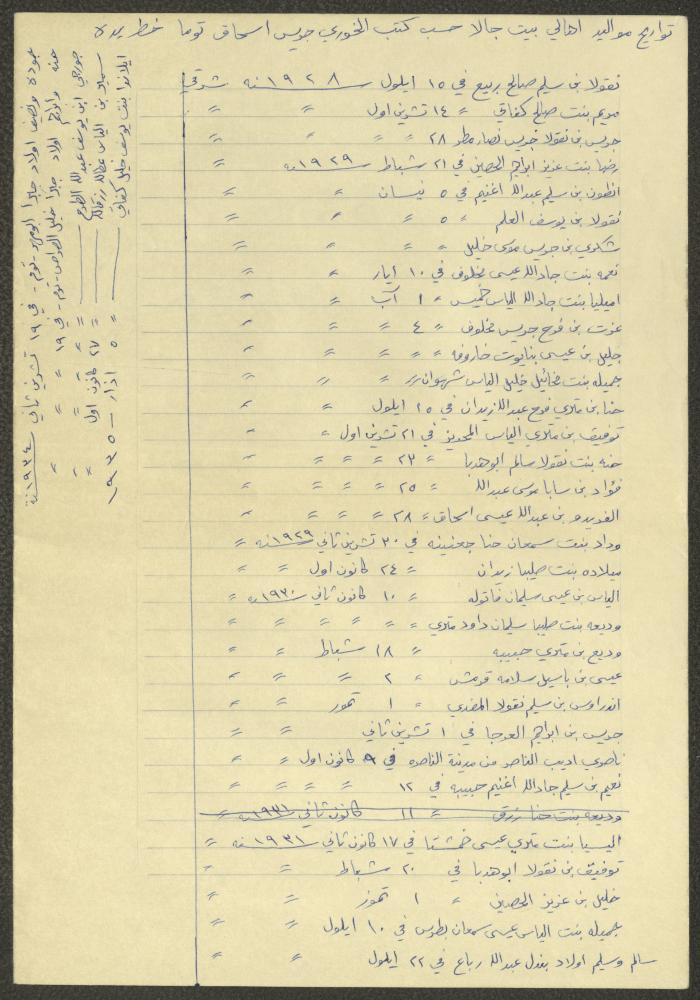 تواريخ مواليد اهالي بيت جالا حسب كتب الخوري جريس اسحاق توما خط يده
نقولا بن سليم صالح ربيع في ١٥ ايلول سنة ١٩٢٨ شرقي
مريم بنت صالح كفاتي " ١٤ تشرين اول " "
جريس بن نقولا جريس نصار مطر ٢٨ " " "
رضها بنت عزيز ابراهيم الحصين في ٢١ شباط سنة ١٩٢٩ "
انطون بن سليم عبدالله اغنيم في ٥ نيسان " "
نقولا بن يوسف العلم " ٥ " " "
شكري بن جريس موسى خليل " " " "
نعمه بنت جادالله عيسى مخلوف في ١٠ ايار " "
اميليا بنت جادالله الياس خميس " ١ آب " "
عزت بن فرح جريس مخلوف " ٤ " " "
جليل بن عيسى بنايوت خاروفه " " " " "
جميله بنت مخائيل خليل الياس شهوان " " " "
حنا بن متري فرح عبدالله زيدان في ١٥ ايلول " "
توفيق بن متري الياس المحديز في ٢١ تشرين اول "
حنه بنت نقولا سالم ابوهدبا " ٢٣ " " " "
فؤاد بن سابا موسى عبدالله " ٢٥ " " " "
الفريدو بن عبدالله عيسى اسحاق " ٢٨ " " "
وداد بنت سمعان حنا جعنينه في ٣٠ تشرين ثاني سنة ١٩٢٩ "
ميلاده بنت صليبا زيدان " ٢٤ كانون اول " "
الياس بن عيسى سليمان قاتوله " ١٠ كانون ثاني سنة ١٩٣٠ "
وديعه بنت صليبا سليمان داود متري " " " " " "
وديع بن متري حبيبه " ١٨ شباط " "
عيسى بن باسيل سلامه قرمش " ٢ " " "
اندراوس بن سليم نقولا المفدي " ١ تموز " "
جريس بن ابراهيم العرجا في ١ تشرين ثاني " "
ناصري اديب الناصر من مدينة الناصره في ٩ كانون اول " "
نعيم بن سليم جادالله اغنيم حبيبه في ١٢ " " " "
وديعه بنت حنا رزق " ١١ كانون ثاني سنة ١٩٣١ "
اليسيا بنت متري عيسى خمشتا في ١٧ كانون ثاني سنة ١٩٣١ "
توفيق بن نقولا ابوهدبا في ٢٠ شباط "
خليل بن عزيز الحصين " ١ تموز " "
جميله بنت الياس عيسى سمعان بطرس في ١٠ ايلول " "
سالم وسليم اولاد بندل عبدالله رباع في ٢٢ ايلول " "
عبوده ونصف اولاد جبرا ابومهر - توم - في ١٩ تشرين ثاني سنة ١٩٣٤
حنه وابراهيم اولاد جبرا خليل - توم - في ١٩ " " "
جورجي ابن يوسف عبدالله " " "
سمياد بن الياس عطالله رزقالله " ٢٧ كانون اول "
ايلاندا بنت يوسف خليل كفاتي " ٥ اذار ١٩٣٥